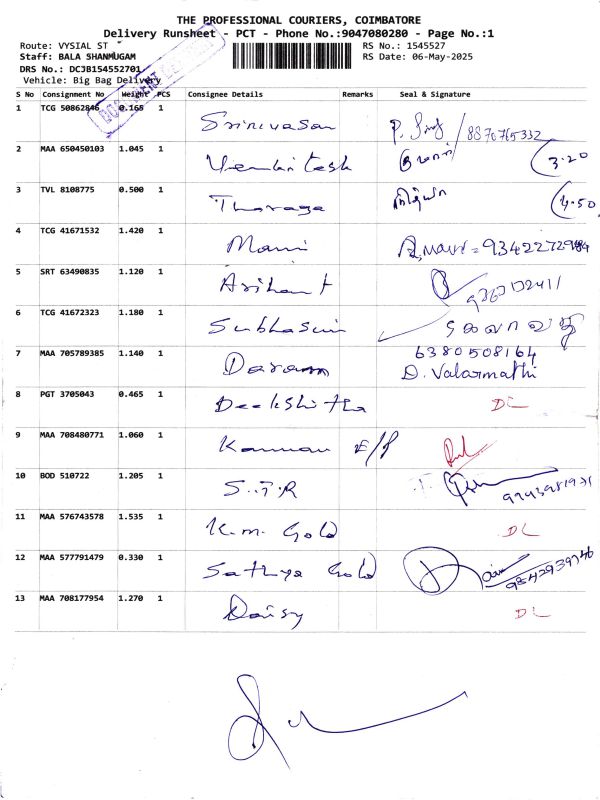 THE PROFESSIONAL COURIERS, COIMBATORE
Delivery Runsheet - PCT - Phone No.:9047080280 - Page No.:1
Route: VYSIAL ST RS No.: 1545527
Staff: BALA SHANMUGAM RS Date: 06-May-2025
DRS No.: DCJB154552701
Vehicle: Big Bag Delivery
S No Consignment No Weight PCS Consignee Details Remarks Seal & Signature
1 TCG 50862846 0.165 1 Srinivasan 8870765332
2 MAA 650450103 1.045 1 Venkitesh 3.20
3 TVL 8108775 0.500 1 Tharaga 4.50
4 TCG 41671532 1.420 1 Mani
5 SRT 63490835 1.120 1 Arihant
6 TCG 41672323 1.180 1 Subhasini
7 MAA 705789385 1.140 1 6380508164
D. Valarmathi
8 PGT 3705043 0.465 1 Deekshitha DL
9 MAA 708480771 1.060 1 Kannan E/P
10 BOD 510722 1.205 1 S.T.R
11 MAA 576743578 1.535 1 K.M. Gold DL
12 MAA 577791479 0.330 1 Sathya Gold
13 MAA 708177954 1.270 1 Daisy DL